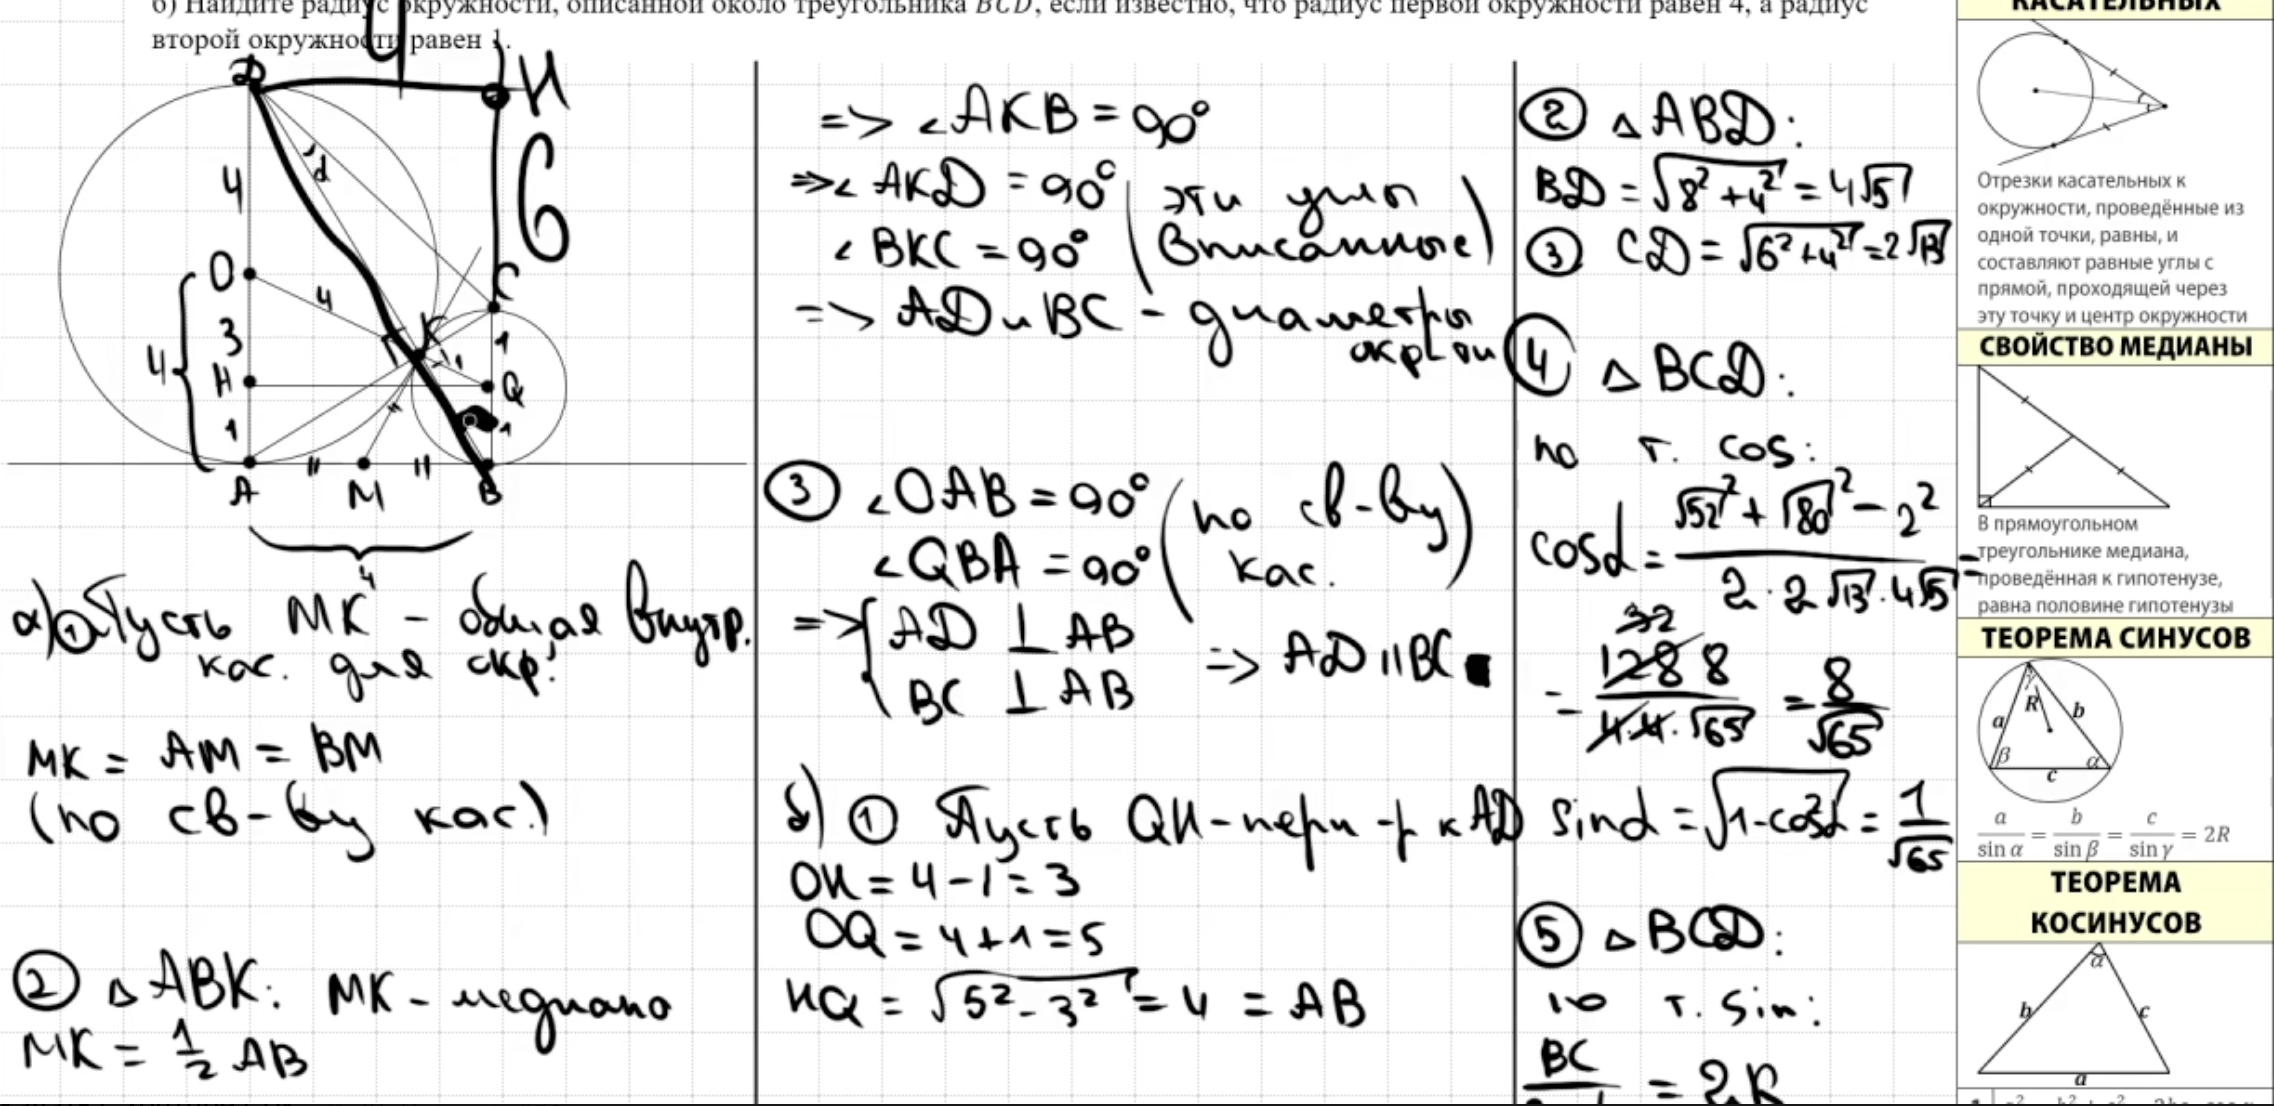 б) Найдите радиус окружности, описанной около треугольника BCD, если известно, что радиус первой окружности равен 4, а радиус
второй окружности равен 1.
D
4
H
6
4
α
O
4
C
K
1
4
3
H
1
Q
1
1
A
M
B
4
а) ① Пусть MK – общая внутр.
кас. для окр.
MK = AM = BM
(по св-ву кас.)
② △ABK: MK – медиана
MK = 1/2 AB
=> ∠AKB = 90°
=> ∠AKD = 90°
∠BKC = 90°
(эти углы
вписанные)
=> AD и BC – диаметры
окр-ти
③ ∠OAB = 90°
∠QBA = 90°
(по св-ву
кас.
=> { AD ⊥ AB
BC ⊥ AB
=> AD || BC
б) ① Пусть QH – перп-р к AD
OH = 4 – 1 = 3
OQ = 4 + 1 = 5
HQ = √5² – 3² = 4 = AB
② △ABD:
BD = √8² + 4² = 4√5
③ CD = √6² + 4² = 2√13
④ △BCD:
по т. cos:
cosα = √52² + √80² – 2² / 2 · 2√13 · 4√5 =
32
= 128 8 / 4·4·√65 = 8/√65
sinα = √1–cos²α = 1/√65
⑤ △BCD:
по т. sin:
BC = 2R
КАСАТЕЛЬНЫХ
Отрезки касательных к
окружности, проведённые из
одной точки, равны, и
составляют равные углы с
прямой, проходящей через
эту точку и центр окружности
СВОЙСТВО МЕДИАНЫ
В прямоугольном
треугольнике медиана,
проведённая к гипотенузе,
равна половине гипотенузы
ТЕОРЕМА СИНУСОВ
γ
R
a
b
β
α
c
a/sin α = b/sin β = c/sin γ = 2R
ТЕОРЕМА
КОСИНУСОВ
α
b
c
a